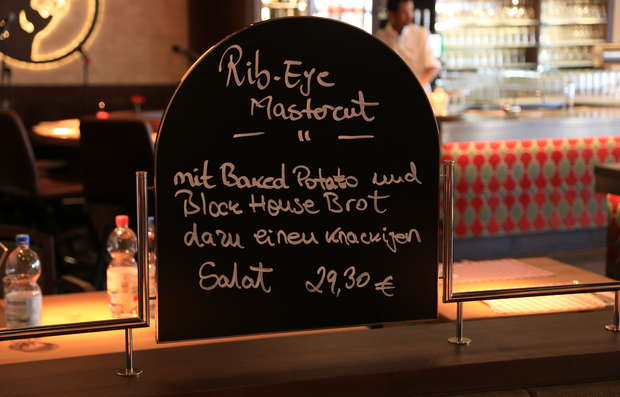 Rib-Eye
Mastercut
— " —
mit Baked Potato und
Block House Brot
dazu einen knackigen
Salat 29,30 €